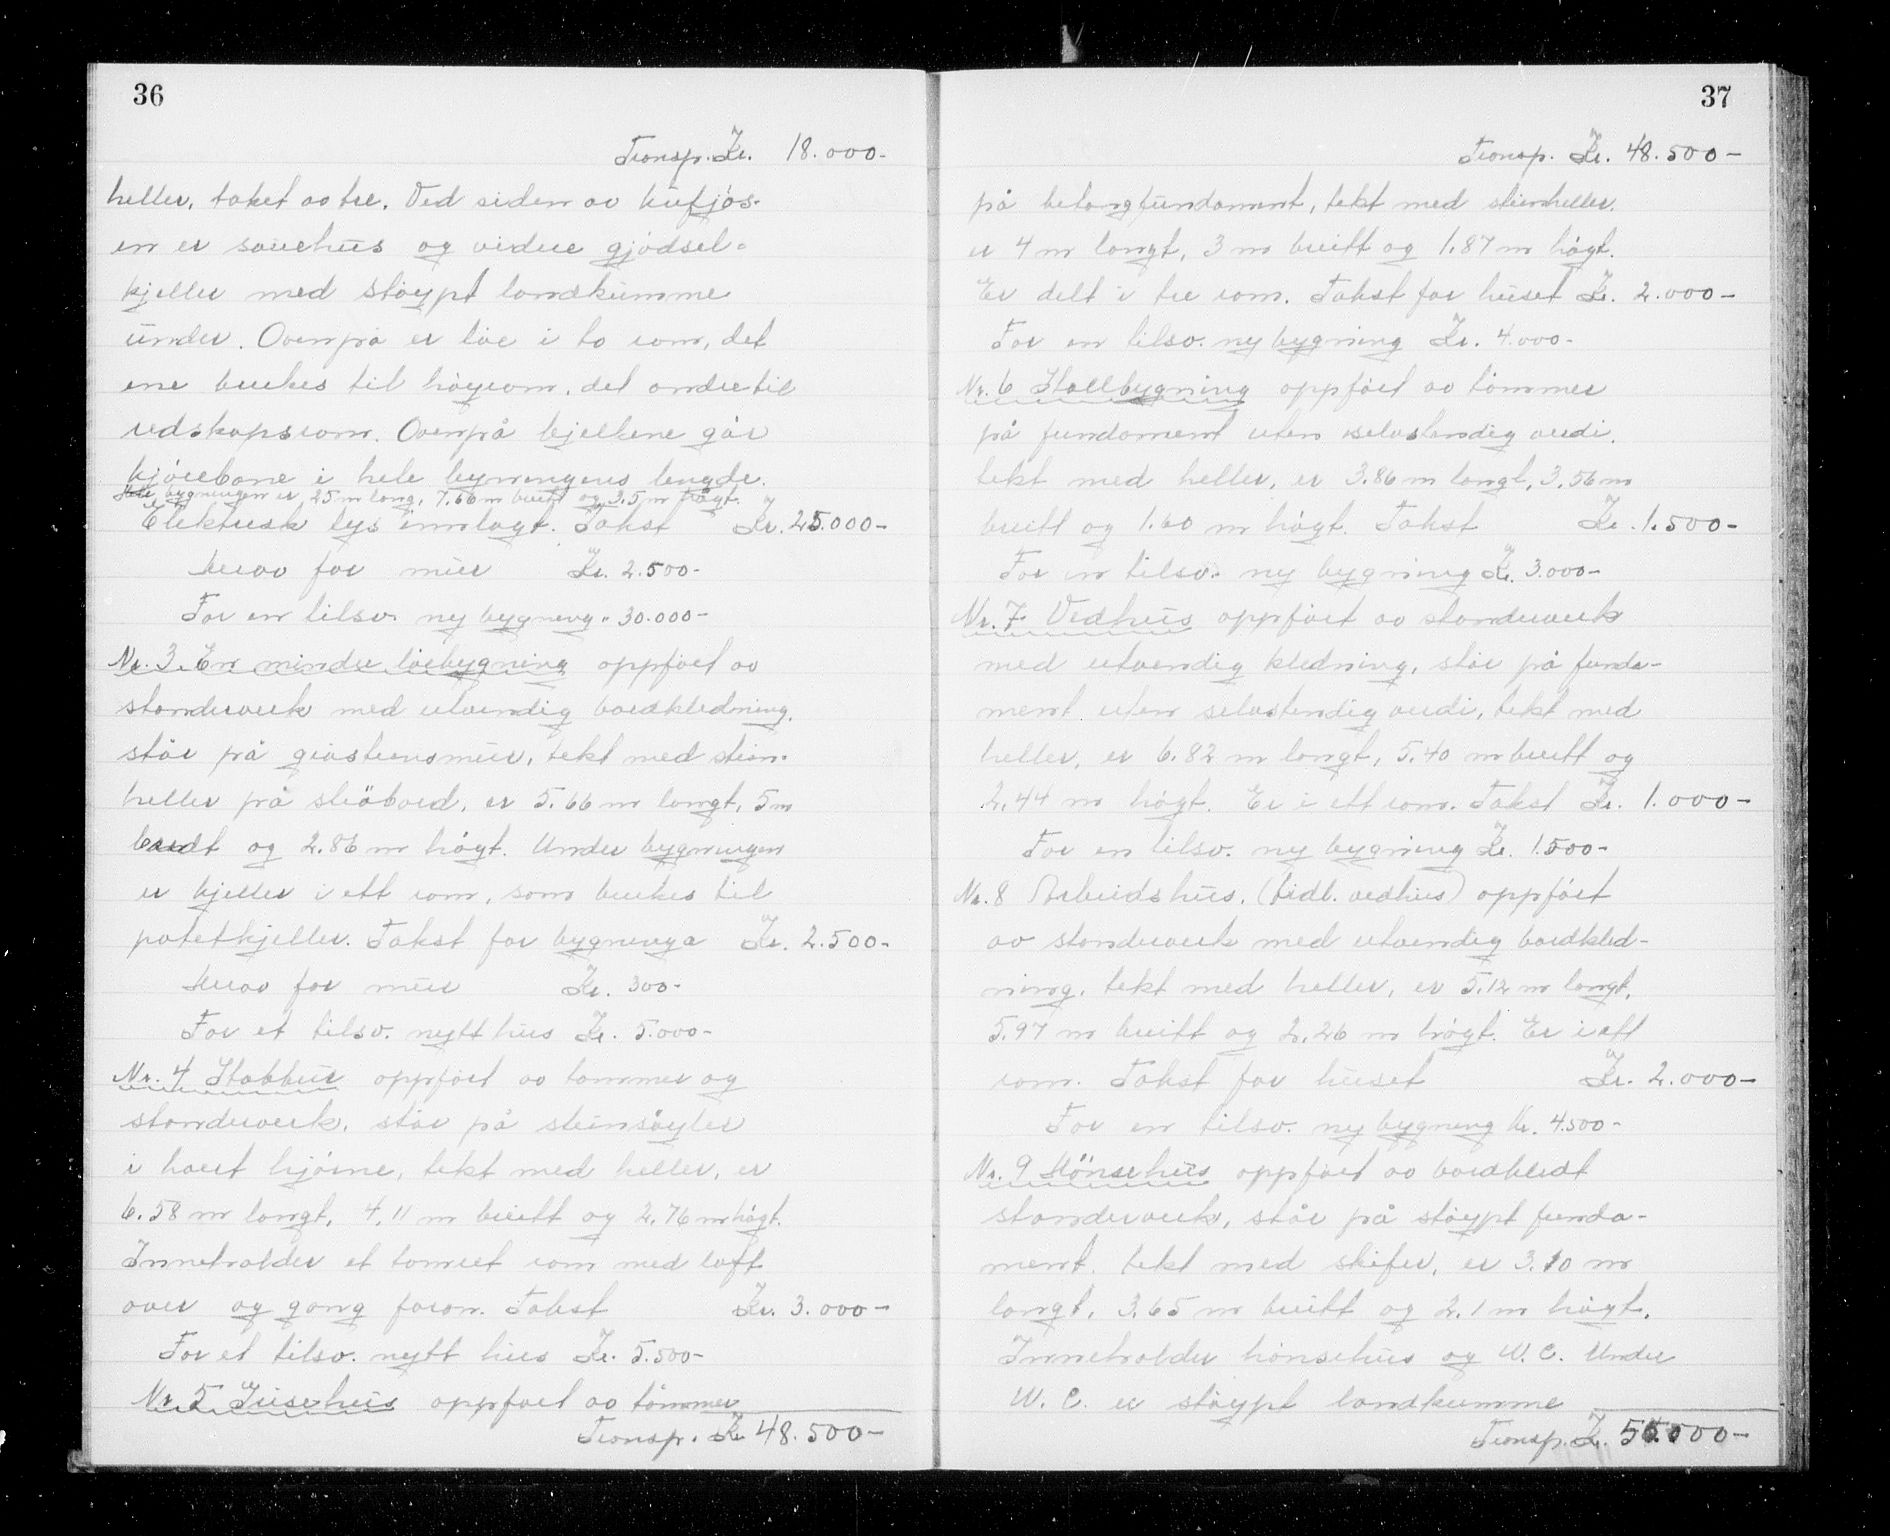 36
Transp. Kr. 18.000-
heller, taket av tre. Ved siden av kufjøs-
en er sauehus og videre gjødsel-
kjeller med støypt landkumme
under. Ovenpå er løe i to rom, det
ene brukes til høyrom, det andre til
redskapsrom. Ovenpå bjelkene går
kjørebane i hele bygningens lengde.
Hele bygningen er 25 m lang, 7.66 m breitt og 3.5 m høgt.
Elektrisk lys innlagt. Takst Kr. 25.000-
Herav for mur Kr. 2.500-
For en tilsv. ny bygning " 30.000-
Nr. 3. En mindre løebygning oppført av
standerverk med utvendig bordkledning,
står på gråsteinsmur, tekt med stein-
heller på slåbord, er 5.66 m langt, 5 m
breidt og 2.86 m høgt. Under bygningen
er kjeller i ett rom, som brukes til
potetkjeller. Takst for bygninga Kr. 2.500-
Herav for mur Kr. 300-
For et tilsv. nytt hus Kr. 5.000-
Nr. 4 Stabbur oppført av tømmer og
standerverk, står på steinsøyler
i hvert hjørne, tekt med heller, er
6.58 m langt, 4.11 m breitt og 2.76 m høgt.
Inneholder et tømret rom med loft
over og gang foran. Takst Kr. 3.000-
For et tilsv. nytt hus Kr. 5.500-
Nr. 5 Grisehus oppført av tømmer
Transp. Kr. 48.500-
37
Transp. Kr. 48.500-
på betongfundament, tekt med steinheller.
er 4 m langt, 3 m breitt og 1.87 m høgt.
Er delt i tre rom. Takst for huset Kr. 2.000-
For en tilsv. ny bygning Kr. 4.000-
Nr. 6 Stallbygning oppført av tømmer
på fundament uten selvstendig verdi.
tekt med heller, er 3.86 m langt, 3.56 m
breitt og 1.60 m høgt. Takst Kr. 1.500-
For en tilsv. ny bygning Kr. 3.000-
Nr. 7 Vedhus oppført av standerverk
med utvendig kledning, står på funda-
ment uten selvstendig verdi, tekt med
heller, er 6.82 m langt, 5.40 m breitt og
2.44 m høgt. Er i ett rom. Takst Kr. 1.000-
For en tilsv. ny bygning Kr. 1.500-
Nr. 8 Arbeidshus, (tidl. vedhus) oppført
av standerverk med utvendig bordkled-
ning, tekt med heller, er 5.12 m langt,
5.97 m breitt og 2.26 m høgt. Er i ett
rom. Takst for huset Kr. 2.000-
For en tilsv. ny bygning Kr. 4.500-
Nr. 9 Hönsehus oppført av bordkledt
standerverk, står på støypt funda-
ment. tekt med skifer, er 3.10 m
langt, 3.65 m breitt og 2.1 m høgt.
Inneholder hønsehus og W.C. Under
W.C. er støypt landkumme
Transp. Kr.